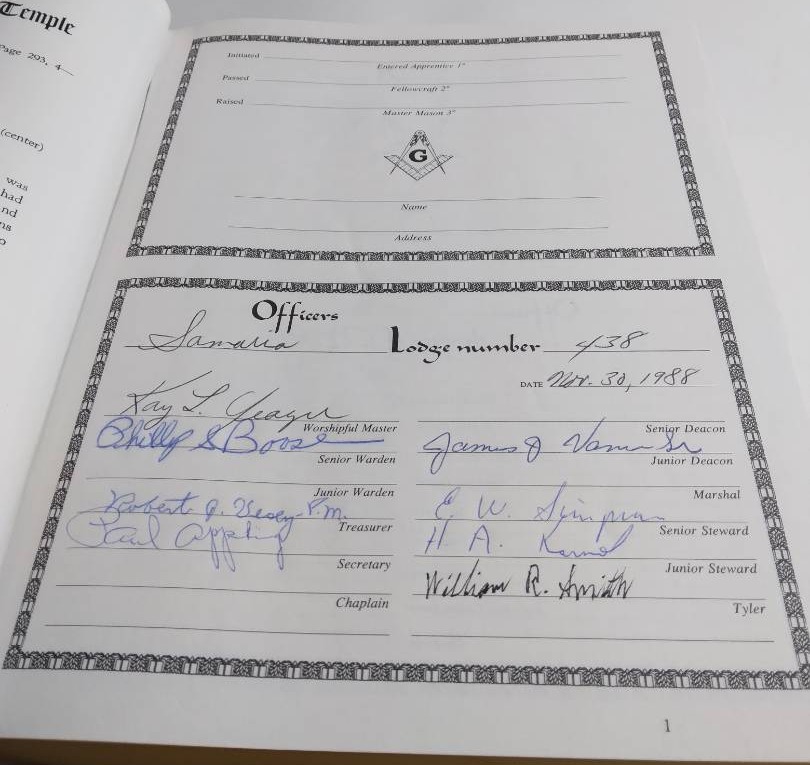 Temple
Page 293, 4—
(center)
was
had
nd
ns
o
Initiated
Entered Apprentice 1°
Passed
Fellowcraft 2°
Raised
Master Mason 3°
G
Name
Address
Officers
Samaria Lodge number 438
DATE Nov. 30, 1988
Ray L. Yeager
Worshipful Master
Senior Deacon
Phillip S Boose James J
Senior Warden
Junior Deacon
Junior Warden
Marshal
Robert J. Vesey P.M. E. W. Simpson
Treasurer
Senior Steward
Paul Appling H A.
Secretary
Junior Steward
William R. Smith
Chaplain
Tyler
1